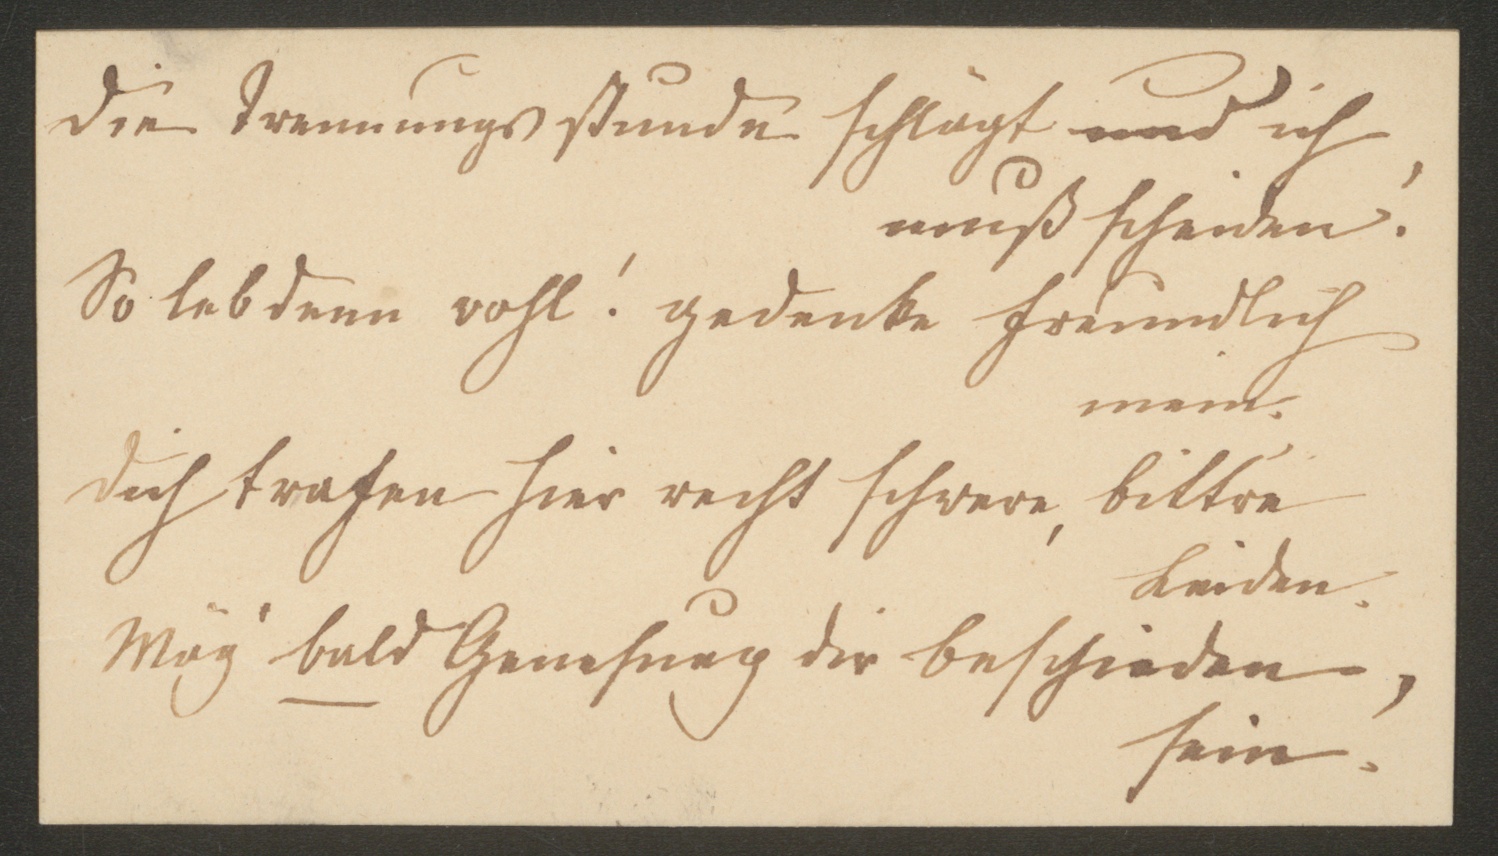 Die Trennungsstunde schlägt und ich
muß scheiden!
So leb denn wohl! gedenke freundlich
mein.
Dich trafen hier recht schwere, bittre
Leiden.
Mög' bald Genesung dir beschieden,
sein.